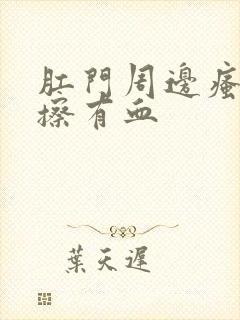 肛門周邊瘙
擦有血
葉天遲